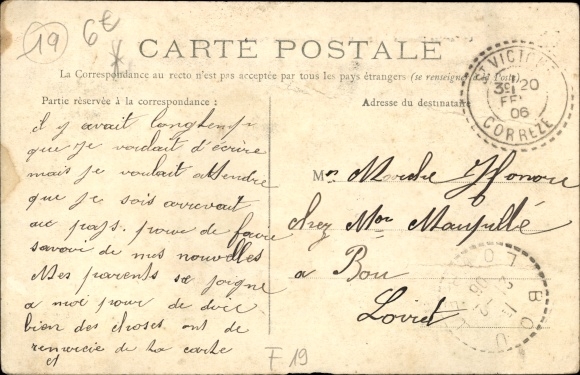 19
6€
CARTE POSTALE
La Correspondance au recto n'est pas acceptée par tous les pays étrangers (se renseigner à la Poste)
Partie réservée à la correspondance :
Adresse du destinataire
ST VICTOUR
20
FEV
06
CORREZE
il y avait longtemps
que je voulait d'écrire
mais je voulait attendre
que je sois arrevait
au pays. pour de faire
savoir de mes nouvelles
Mes parents se joigne
a moi pour de dire
bien des choses. ont de
remercie de ta carte
et
Mr Marche Honoré
chez Mor
a Bou
Loiret
BOU
LOIRET
F19